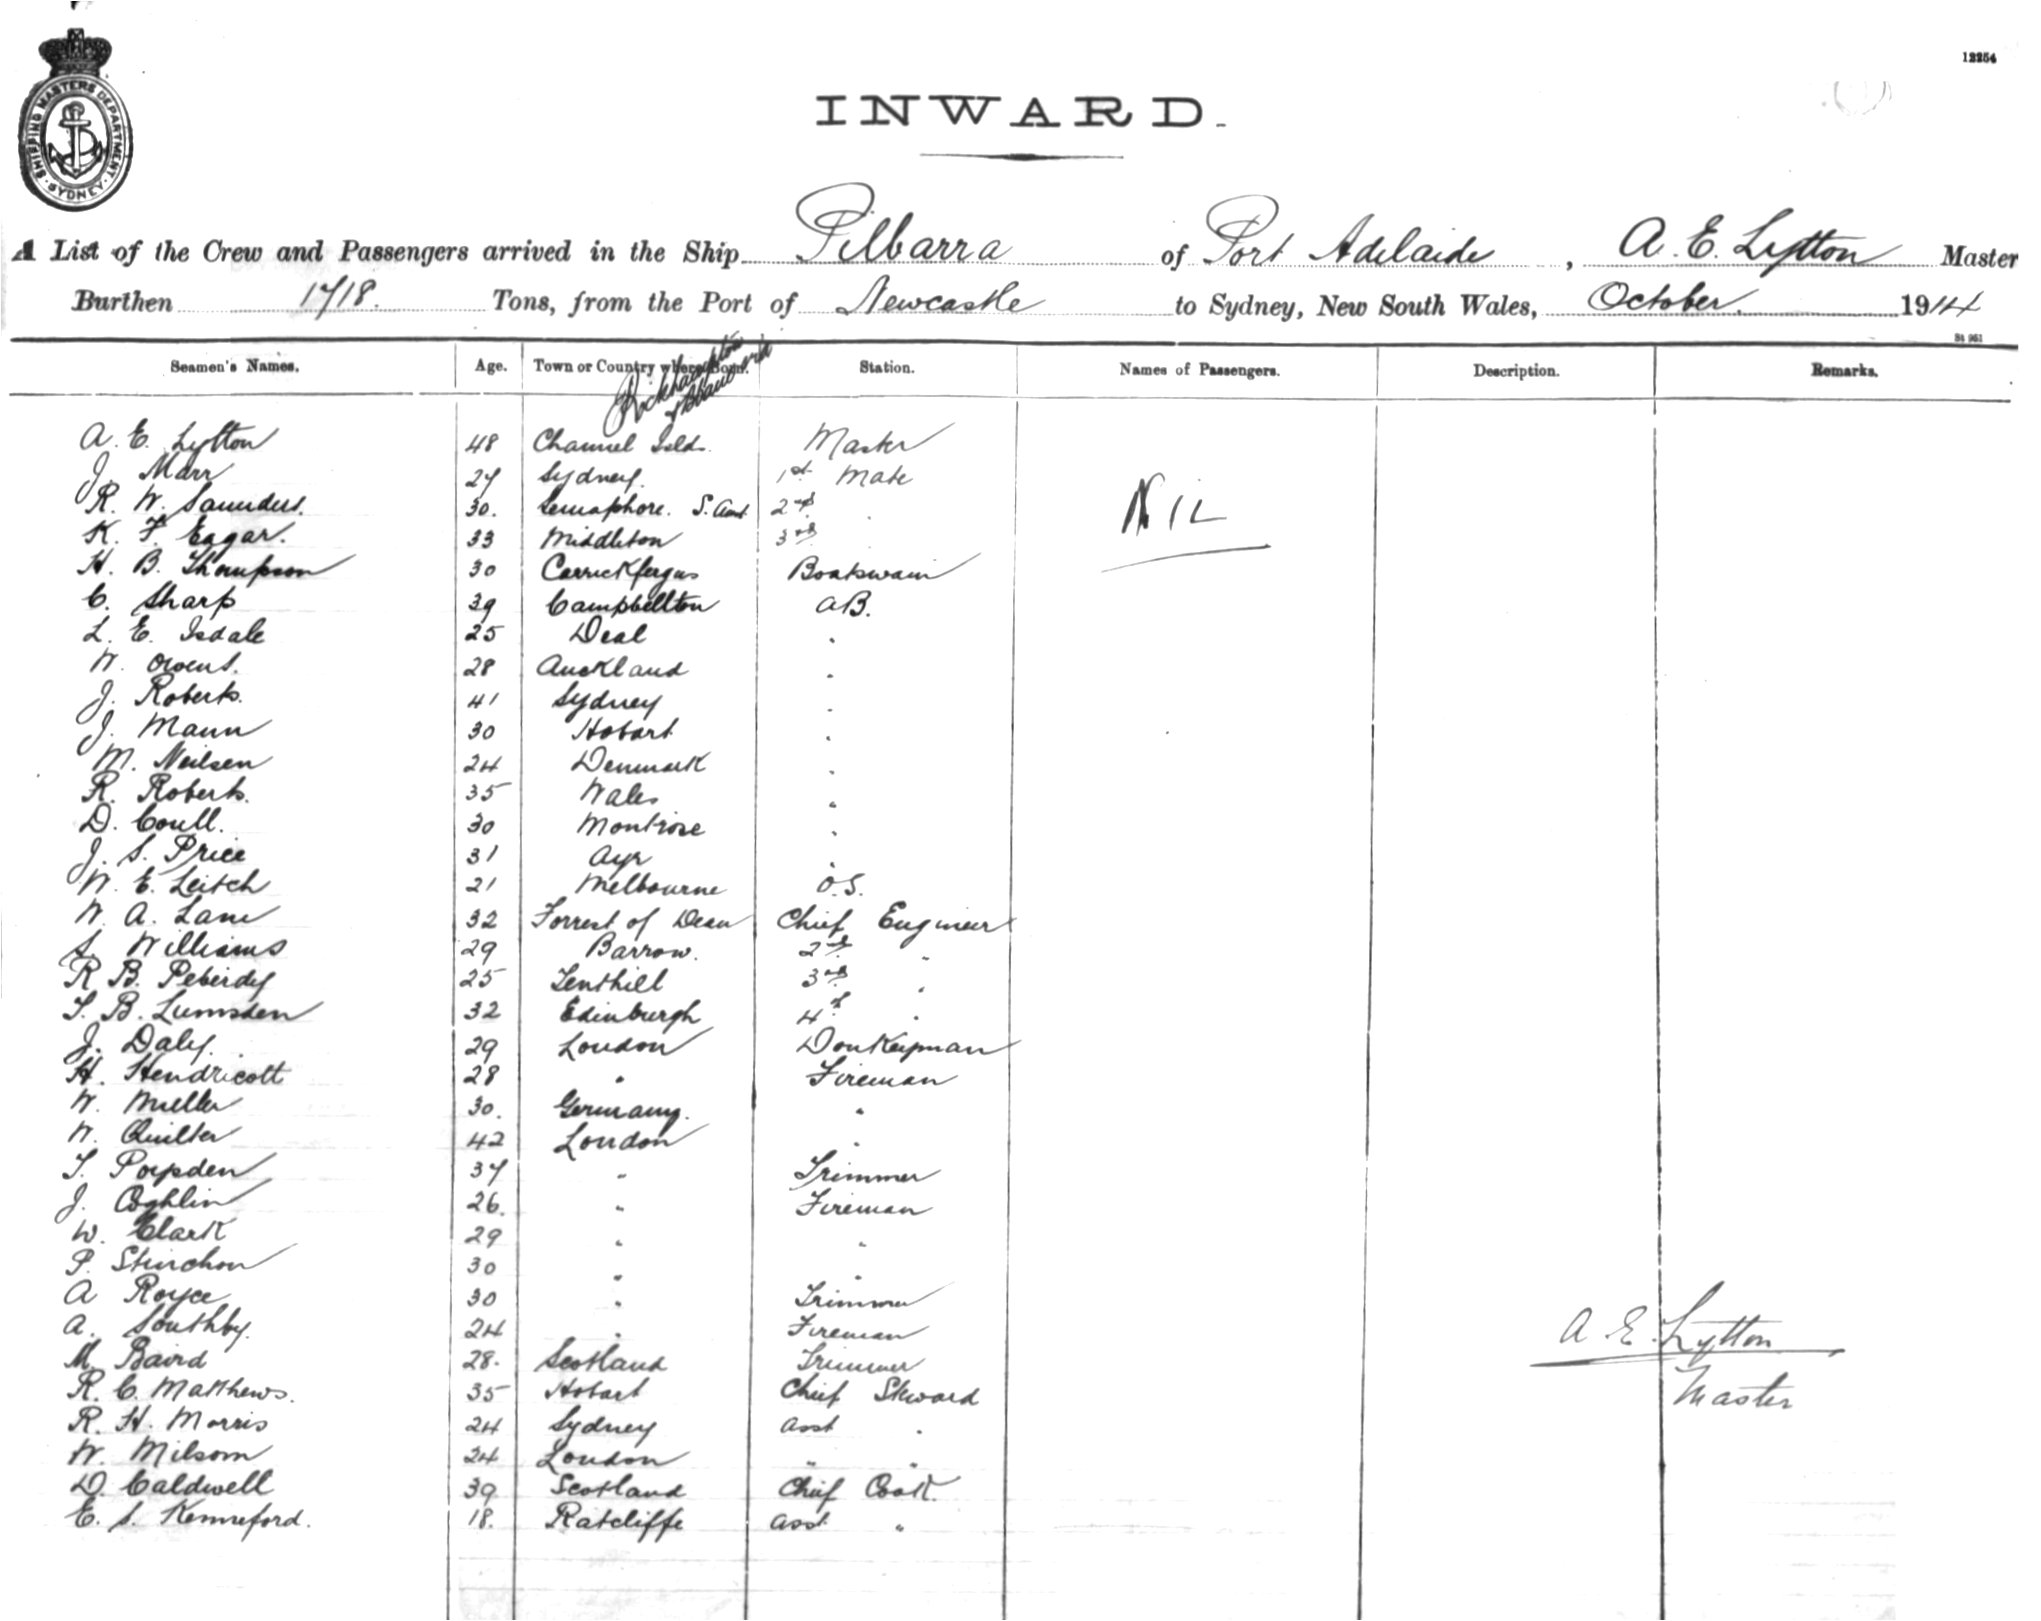 12254
SHIPPING MASTERS DEPARTMENT · SYDNEY ·
INWARD.
A List of the Crew and Passengers arrived in the Ship Pilbarra of Port Adelaide, A. E. Lytton Master
Burthen 1718. Tons, from the Port of Newcastle to Sydney, New South Wales, October. 1914
St 951
Seamen's Names. Age. Town or Country where Born. Station. Names of Passengers. Description. Remarks.
Rockhampton
A. E. Lytton 48 Channel Islds. Master
J. Marr 27 Sydney. 1st Mate
R. W. Saunders. 30. Semaphore. S. Aust. 2nd "
K. F. Eagar. 33 Middleton 3rd
NIL
H. B. Thompson 30 Carrickfergus Boatswain
C. Sharp 39 Campbellton AB.
L. E. Isdale 25 Deal "
W. Owens. 28 Auckland "
J. Roberts. 41 Sydney "
J. Mann 30 Hobart "
M. Neilsen 24 Denmark "
R. Roberts. 35 Wales "
D. Coull. 30 Montrose "
J. S. Price 31 Ayr "
W. E. Leitch 21 Melbourne O.S.
W. A. Lane 32 Forrest of Dean Chief Engineer
S. Williams 29 Barrow. 2nd "
R. B. Peberdy 25 Tenthill 3rd "
T. B. Lumsden 32 Edinburgh 4th "
J. Daly. 29 London Donkeyman
H. Hendricott 28 " Fireman
W. Mueller 30. Germany. "
W. Quilter 42 London "
T. 37 " Trimmer
J. Coghlin 26. " Fireman
W. Clark 29 " "
P. 30 " "
A Royce 30 " Trimmer
A. Southby. 24 " Fireman
M. Baird 28. Scotland Trimmer
R. C. Matthews. 35 Hobart Chief Steward
R. H. Morris 24 Sydney Asst "
W. Milsom 24 London " "
D. Caldwell 39 Scotland Chief Cook.
E. S. Kenneford. 18. Ratcliffe Asst "
A. E. Lytton
Master